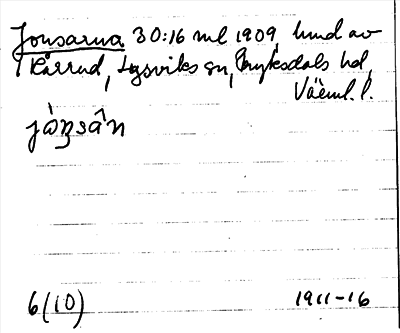 Jonsarna 30:16 nel 1909, hmd av
Kårrud, Lysviks sn, Fryksdals hd,
Värml. l.
jòṉsân
6(10) 1911-16